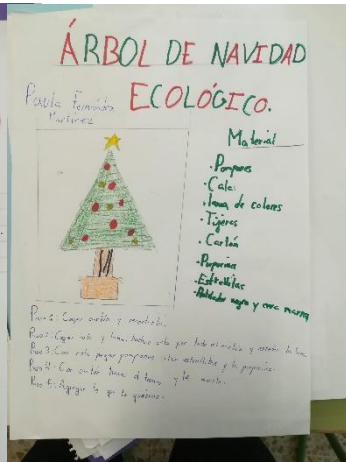 ÁRBOL DE NAVIDAD
ECOLÓGICO.
Paula Fernández
Martínez
Material
· Pompones
· Cola
· Lana de colores
· Tijeras
· Cartón
· Purpurina
· Estrellitas
· Rotulador negro y cera marrón
Paso 1: Coger cartón y recortarlo.
Paso 2: Coger cola y lana, todo el cartón y
Paso 3: Con cola pegar pompones, estrellitas y la purpurina.
Paso 4: Con cartón hacer el tronco y
Paso 5: Agregar lo que tu quieras.